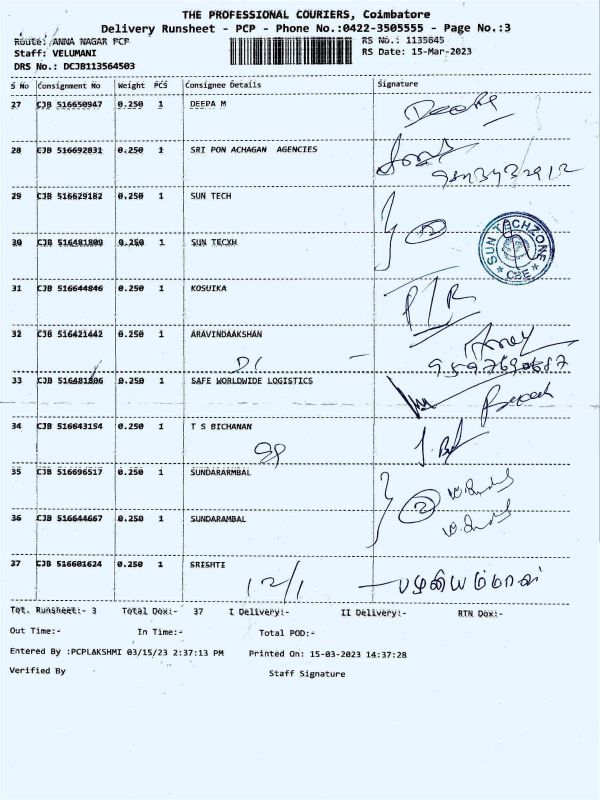 THE PROFESSIONAL COURIERS, Coimbatore
Delivery Runsheet - PCP - Phone No.:0422-3505555 - Page No.:3
Route: ANNA NAGAR PCP RS No.: 1135645
Staff: VELUMANI RS Date: 15-Mar-2023
DRS No.: DCJB113564503
S No Consignment No Weight PCS Consignee Details Signature
27 CJB 516650947 0.250 1 DEEPA M
28 CJB 516692831 0.250 1 SRI PON ACHAGAN AGENCIES
29 CJB 516629182 0.250 1 SUN TECH
SUN TECHZONE
CBE
30 CJB 516481809 0.250 1 SUN TECXH
31 CJB 516644846 0.250 1 KOSUIKA
32 CJB 516421442 0.250 1 ARAVINDAAKSHAN
33 CJB 516481806 0.250 1 SAFE WORLDWIDE LOGISTICS
34 CJB 516643154 0.250 1 T S BICHANAN
35 CJB 516696517 0.250 1 SUNDARARMBAL
2
36 CJB 516644667 0.250 1 SUNDARAMBAL
37 CJB 516601624 0.250 1 SRISHTI
12/1 பழனியம்மாள்
Tot. Runsheet:- 3 Total Dox:- 37 I Delivery:- II Delivery:- RTN Dox:-
Out Time:- In Time:- Total POD:-
Entered By :PCPLAKSHMI 03/15/23 2:37:13 PM Printed On: 15-03-2023 14:37:28
Verified By Staff Signature